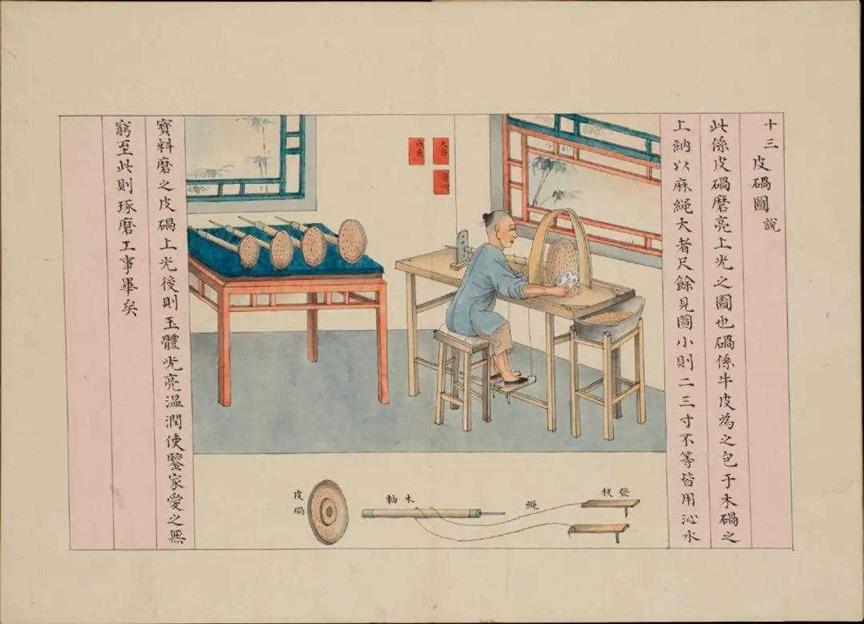 十三
皮碢圖說
此係皮碢磨亮上光之圖也碢係牛皮為之包于木碢之
上納以麻繩大者尺餘見圖小則二三寸不等皆用沁水
寶料磨之皮碢上光後則玉體光亮溫潤使鑒家愛之無
窮至此則琢磨工事畢矣
登板
繩
木軸
皮碢